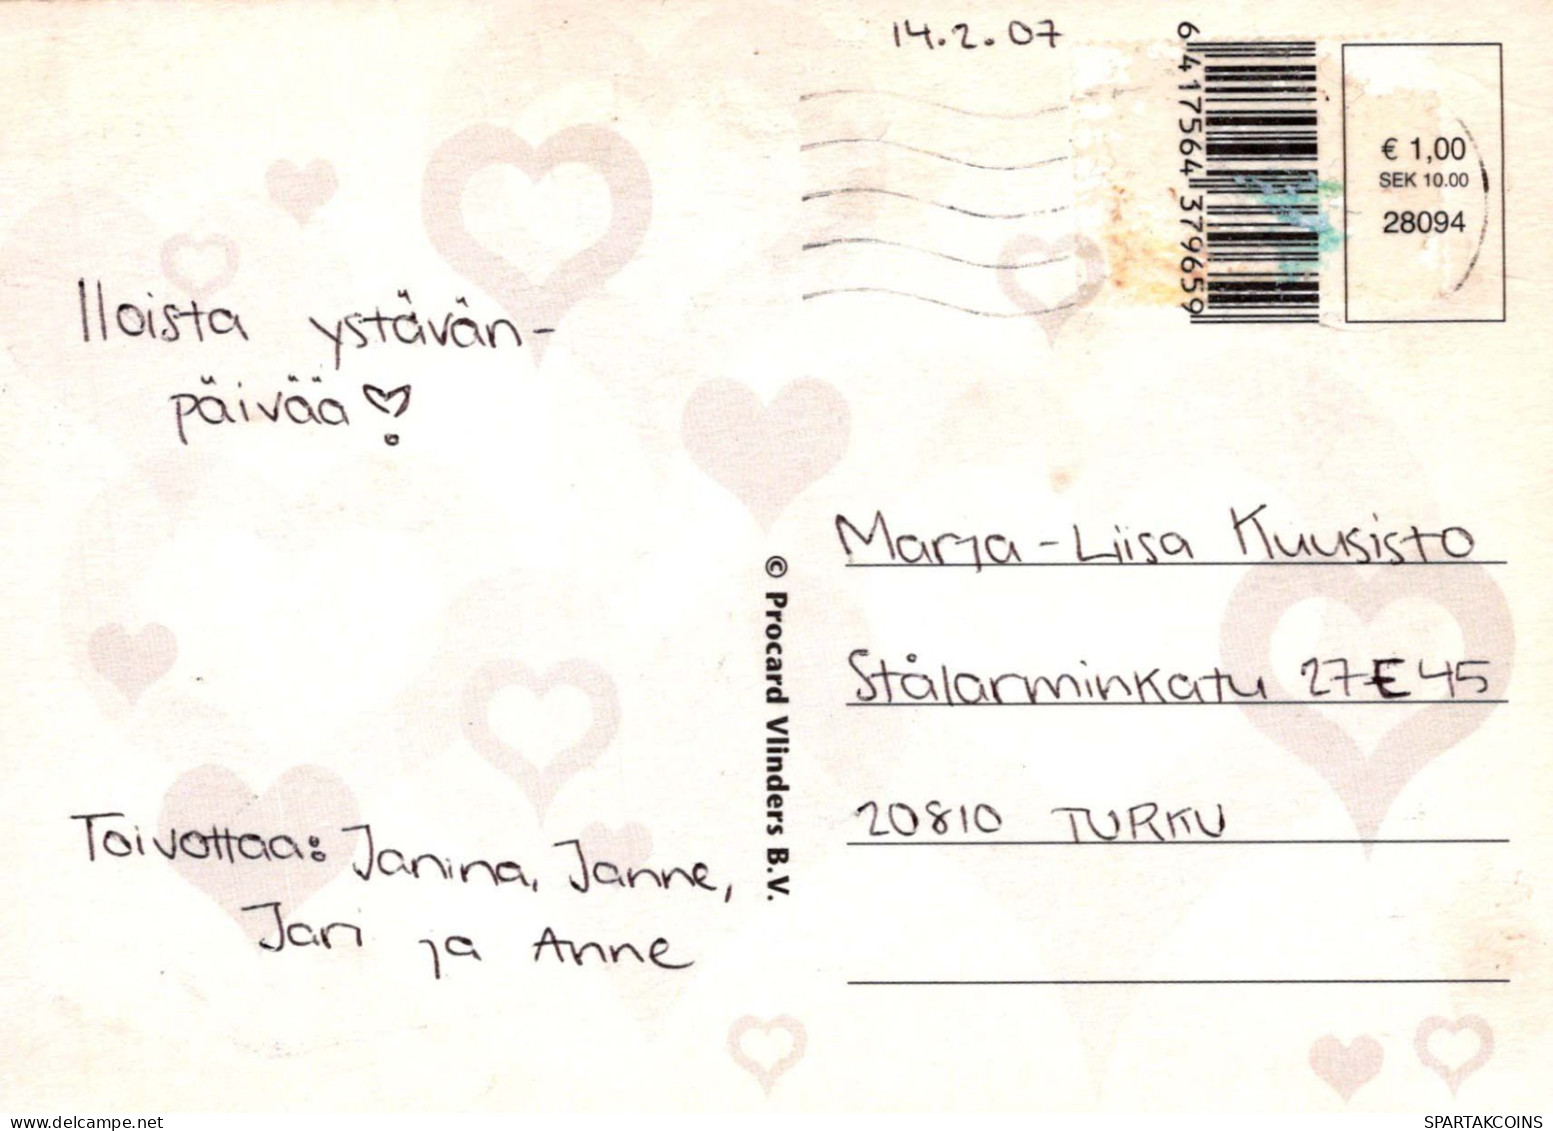 14.2.07
6 417564 379659
€ 1,00
SEK 10.00
28094
Iloista ystävän-
päivää
Toivottaa: Janina, Janne,
Jari ja Anne
© Procard Vlinders B.V.
Marja-Liisa Kuusisto
Stålarminkatu 27 E 45
20810 TURKU
delcampe.net
SPARTAKCOINS